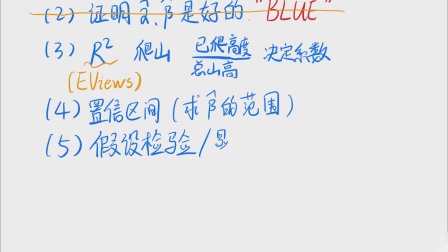 (2) 证明α̂,β̂是好的 "BLUE"
(3) R² 爬山 已爬高度/总山高 决定系数
(EViews)
(4) 置信区间(求β̂的范围)
(5) 假设检验/